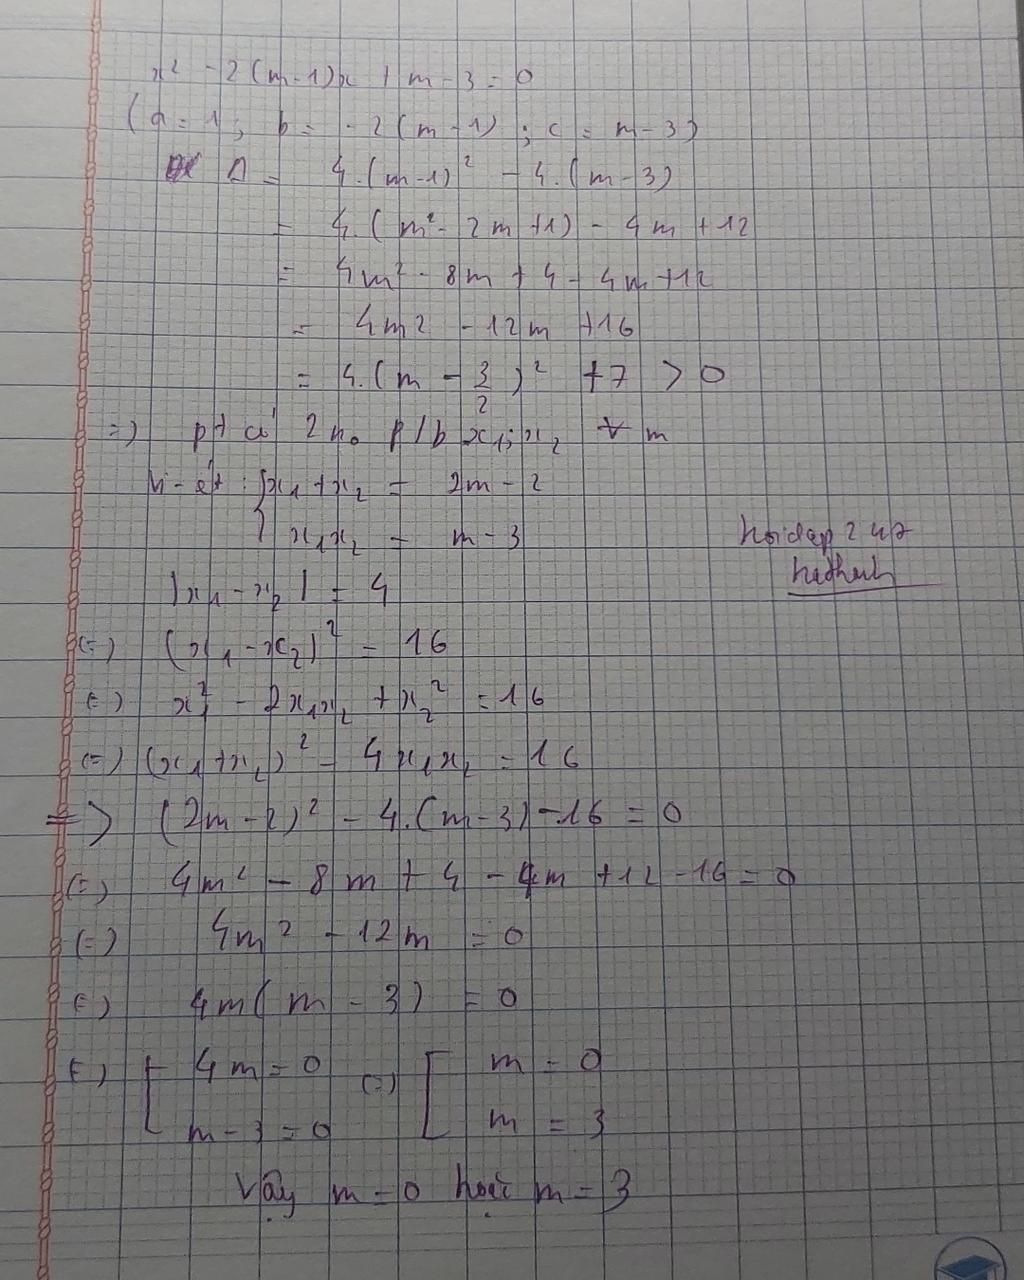 x² - 2(m-1)x + m - 3 = 0
(a = 1 ; b = - 2(m-1) ; c = m-3)
Δ = 4.(m-1)² - 4.(m-3)
= 4.(m² - 2m+1) - 4m +12
= 4m² - 8m + 4 - 4m +12
= 4m² - 12m +16
= 4.(m - 3/2)² +7 > 0
=) pt có 2 no p/b x₁; x₂ ∀ m
Vi-ét : { x₁ + x₂ = 2m - 2
x₁x₂ = m - 3
hoidap247
|x₁ - x₂| = 4
(=) (x₁ - x₂)² = 16
(=) x₁² - 2x₁x₂ + x₂² = 16
(=) (x₁+x₂)² - 4x₁x₂ = 16
=> (2m-2)² - 4.(m-3) -16 = 0
(=) 4m² - 8m + 4 - 4m +12 -16 = 0
(=) 4m² - 12m = 0
(=) 4m(m - 3) = 0
(=) [ 4m = 0 (=) [ m = 0
m-3 = 0 m = 3
Vậy m = 0 hoặc m = 3